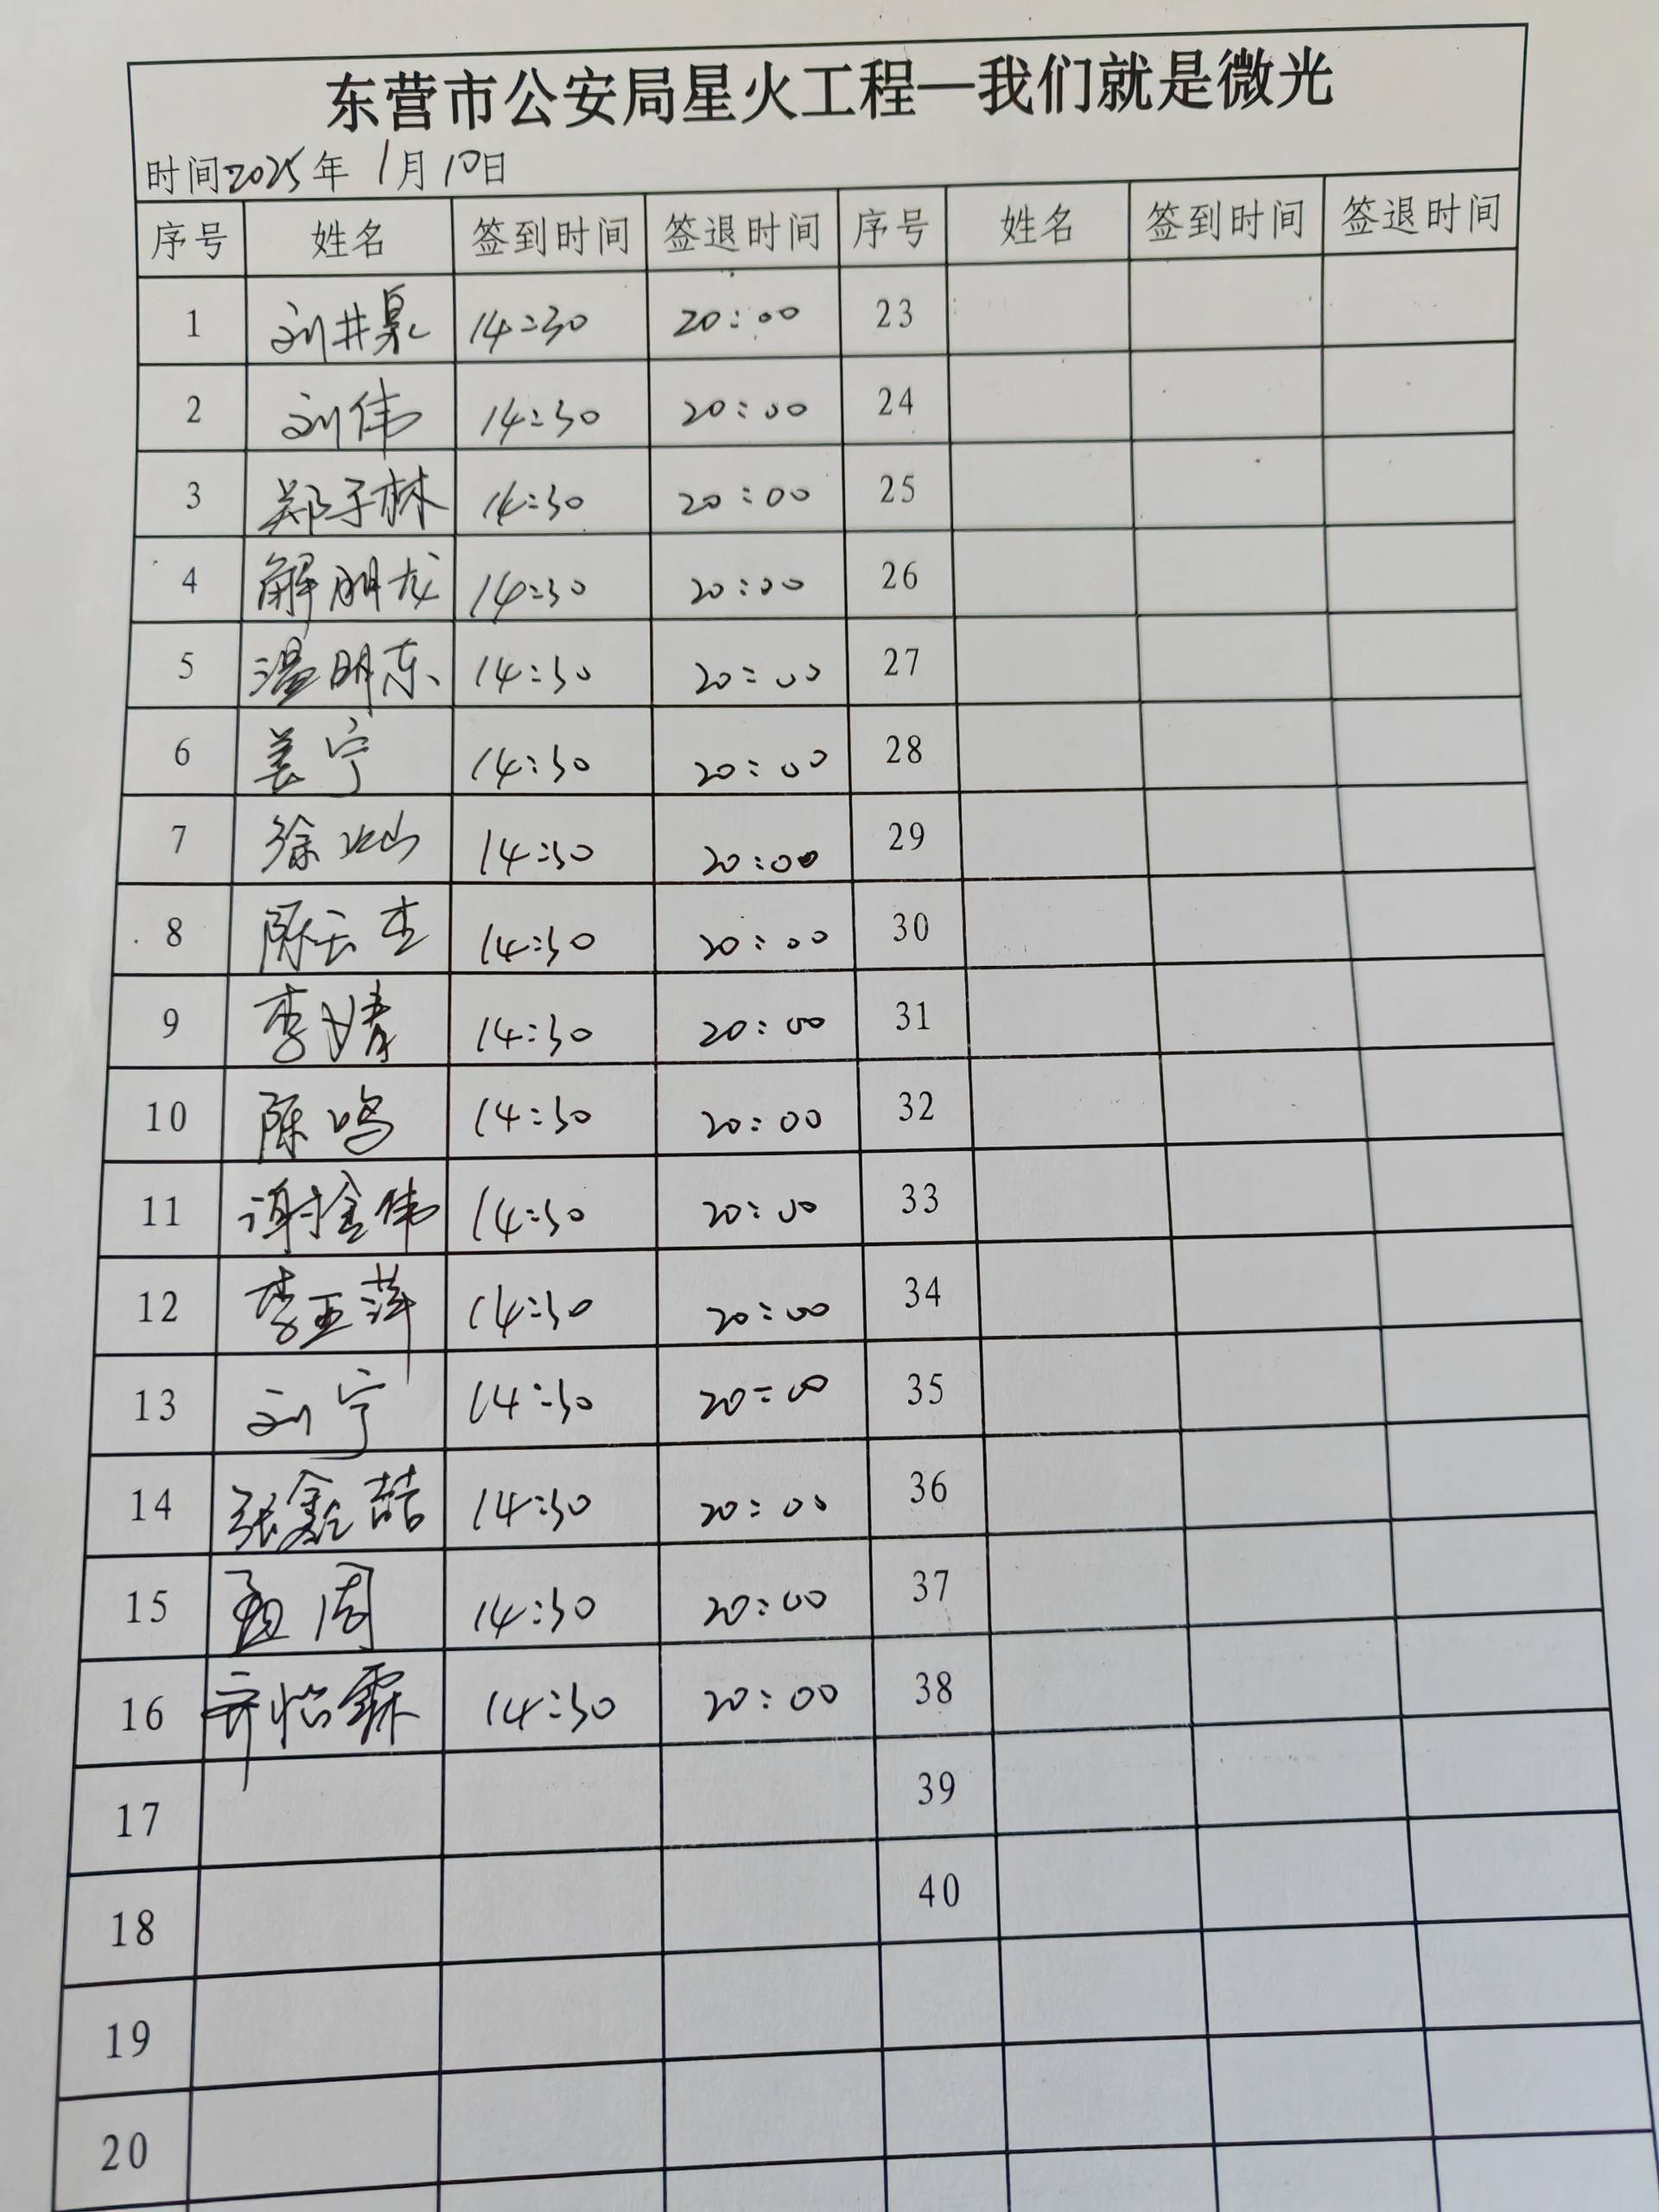 东营市公安局星火工程—我们就是微光
时间2025年 1月10日
序号 姓名 签到时间 签退时间 序号 姓名 签到时间 签退时间
1 刘井泉 14:30 20:00 23
2 刘伟 14:30 20:00 24
3 郑子林 14:30 20:00 25
4 解朋龙 14:30 20:00 26
5 温明东 14:30 20:00 27
6 姜宁 14:30 20:00 28
7 徐 14:30 20:00 29
8 陈云杰 14:30 20:00 30
9 李婧 14:30 20:00 31
10 陈鸣 14:30 20:00 32
11 谢金伟 14:30 20:00 33
12 李亚萍 14:30 20:00 34
13 刘宁 14:30 20:00 35
14 张鑫喆 14:30 20:00 36
15 孟周 14:30 20:00 37
16 齐怡霖 14:30 20:00 38
17 39
18 40
19
20